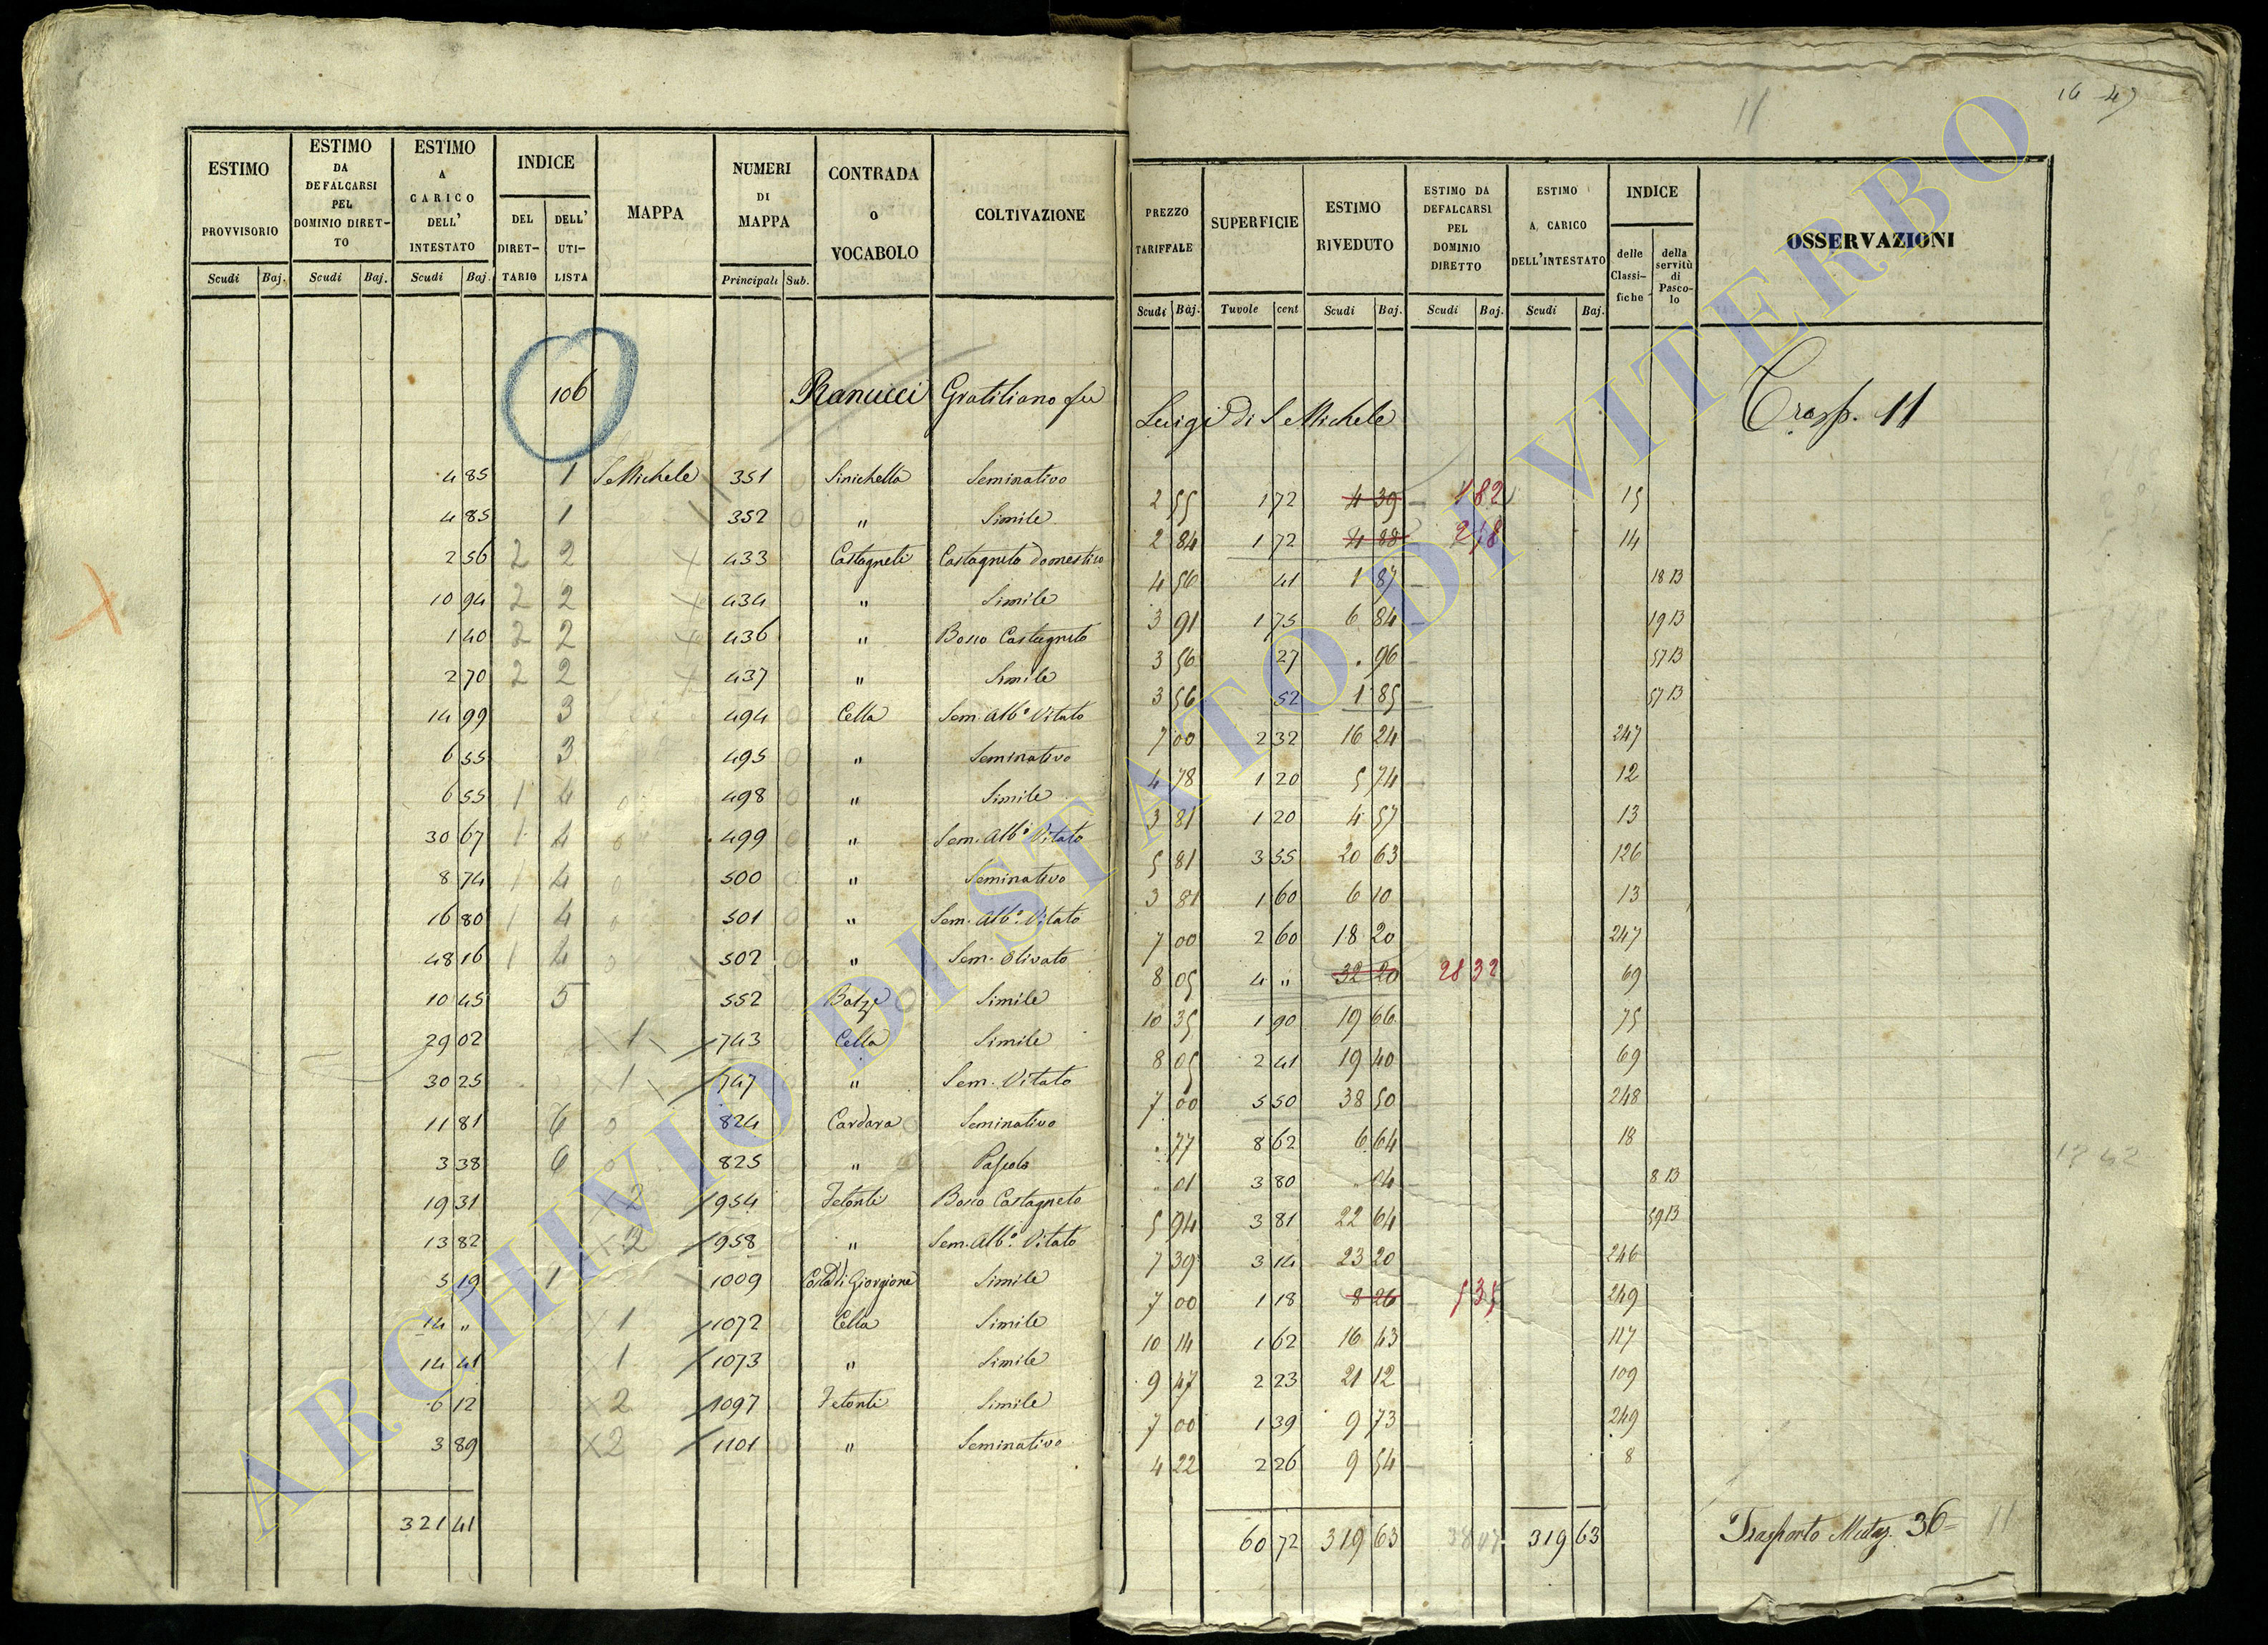 16 47
11
ESTIMO PROVVISORIO Scudi Baj. ESTIMO DA DEFALCARSI PEL DOMINIO DIRET-TO Scudi Baj. ESTIMO A CARICO DELL' INTESTATO Scudi Baj. INDICE DEL DIRET-TARIO DELL' UTI-LISTA MAPPA NUMERI DI MAPPA Principali Sub. CONTRADA o VOCABOLO COLTIVAZIONE
PREZZO TARIFFALE Scudi Baj. SUPERFICIE Tavole cent ESTIMO RIVEDUTO Scudi Baj. ESTIMO DA DEFALCARSI PEL DOMINIO DIRETTO Scudi Baj. ESTIMO A CARICO DELL'INTESTATO Scudi Baj. INDICE delle Classi-fiche della servitù di Pasco-lo OSSERVAZIONI
106 Ranucci Gratiliano fu Luigi di S. Michele Trasp. 11
4 85 1 S. Michele 351 Sinichella Seminativo 2 55 1 72 4 39 1 82 15
4 85 1 352 " Simile 2 84 1 72 4 88 2 18 14
2 56 2 2 433 Castagneti Castagneto Domestico 4 56 41 1 87 18 13
10 94 2 2 434 " Simile 3 91 1 75 6 84 19 13
1 40 2 2 436 " Bosco Castagneto 3 56 27 . 96 57 13
2 70 2 2 437 " Simile 3 56 52 1 85 57 13
14 99 3 494 Cella Sem. Alb.º Vitato 7 00 2 32 16 24 247
6 55 3 495 " Seminativo 4 78 1 20 5 74 12
6 55 1 4 498 " Simile 3 81 1 20 4 57 13
30 67 1 4 499 " Sem. Alb.º Vitato 5 81 3 55 20 63 126
8 74 1 4 500 " Seminativo 3 81 1 60 6 10 13
16 80 1 4 501 " Sem. Alb.º Vitato 7 00 2 60 18 20 247
48 16 1 4 502 " Sem. Olivato 8 05 4 " 32 20 28 32 69
10 45 5 552 Balze Simile 10 35 1 90 19 66 75
29 02 1 743 Cella Simile 8 05 2 41 19 40 69
30 25 1 747 " Sem. Vitato 7 00 5 50 38 50 248
11 81 6 824 Cardara Seminativo . 77 8 62 6 64 18
3 38 6 825 " Pascolo . 01 3 80 . 04 8 13
19 31 2 954 Fetonte Bosco Castagneto 5 94 3 81 22 64 59 13
13 82 2 958 " Sem. Alb.º Vitato 7 39 3 14 23 20 246
5 19 1 1009 Costa di Giorgione Simile 7 00 1 18 8 26 5 35 249
14 " 1 1072 Cella Simile 10 14 1 62 16 43 117
14 41 1 1073 " Simile 9 47 2 23 21 12 109
6 12 2 1097 Fetonte Simile 7 00 1 39 9 73 249
3 89 2 1101 " Seminativo 4 22 2 26 9 54 8
321 41 60 72 319 63 319 63 Trasporto Mutaz. 36 = 11
ARCHIVIO DI STATO DI VITERBO